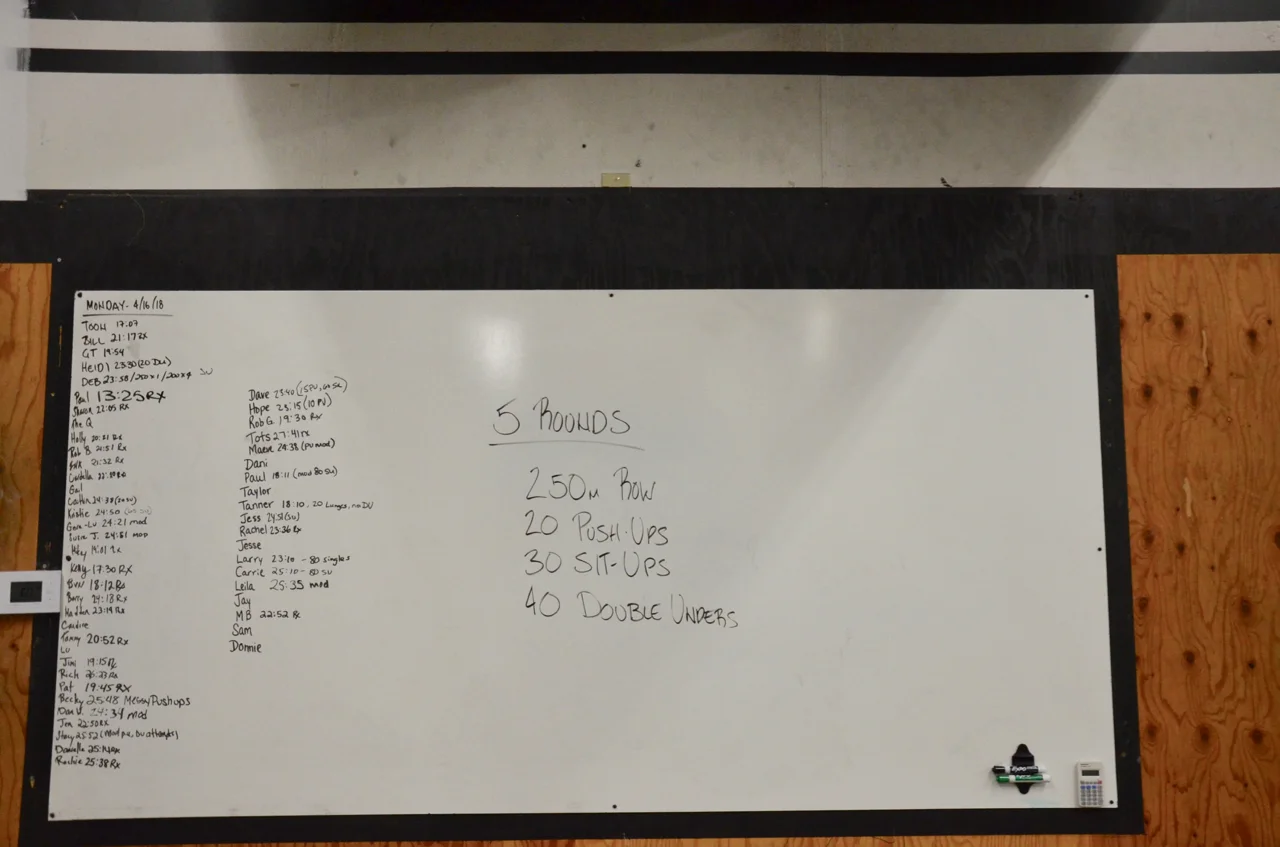 MONDAY- 4/16/18
TOOH 17:07
BILL 21:17 RX
GT 19:54
HEIDI 23:30 (20 DU)
DEB 23:58/250x1/200x4 SU
Paul 13:25 RX
Sharon 22:05 RX
The Q
Holly Rx
Rob B. Rx
21:32 Rx
Gail
Caitlin 24:38
Kristie 24:50
24:21 mod
J. 24:51 MOD
Kelly 17:30 RX
18:12 Rx
Barry 24:18 Rx
23:19 Rx
Candice
Tammy 20:52 Rx
LU
Jim 19:15 Rx
Rich Rx
Pat 19:45 RX
Becky 25:48 Messy Pushups
24:34 mod
Jen 22:50 RX
Stacy 25:52 (Mod PU, DU attempts)
Danielle Rx
25:38 Rx
Dave 23:40 (15 PU,
Hope 23:15 (10 PU)
Rob G. 19:30 Rx
Tots 27:41 rx
24:38 (PU mod)
Dani
Paul 18:11 (mod 80 SU)
Taylor
Tanner 18:10, 20 Lunges, no DU
Jess (SU)
Rachel 23:36 Rx
Jesse
Larry 23:10 - 80 singles
Carrie 25:10 - 80 SU
Leila 25:35 mod
Jay
MB 22:52 Rx
Sam
Donnie
5 ROUNDS
250m ROW
20 PUSH-UPS
30 SIT-UPS
40 DOUBLE UNDERS